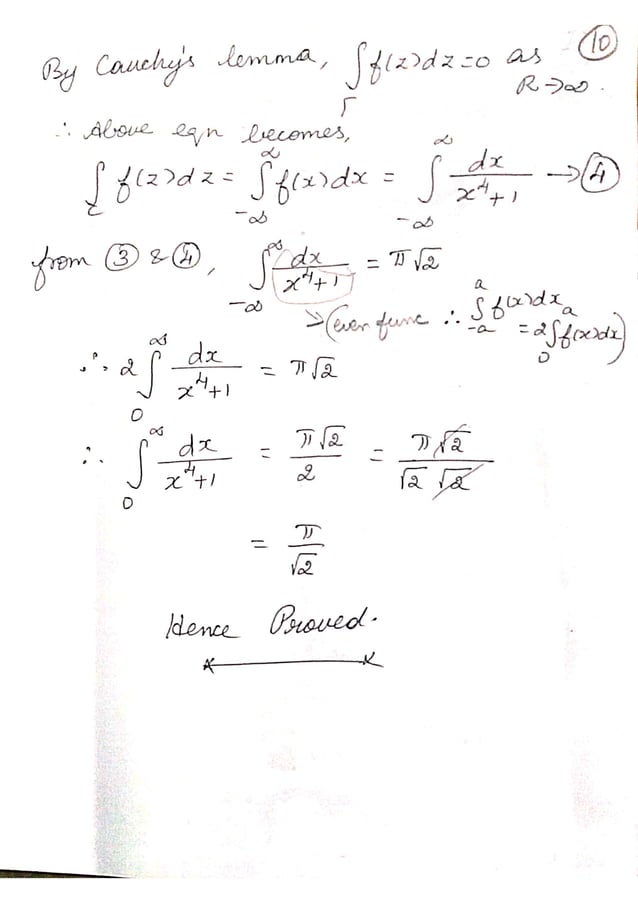 ⑩
By Cauchy's lemma, ∫_Γ f(z)dz=0 as R→∞.
∴ Above eqn becomes,
∫_c f(z)dz = ∫_{-∞}^{∞} f(x)dx = ∫_{-∞}^{∞} dx/(x⁴+1) → ④
from ③ & ④, ∫_{-∞}^{∞} dx/(x⁴+1) = π√2
→ (even func ∴ ∫_{-a}^{a} f(x)dx = 2∫_0^a f(x)dx)
∴ 2∫_0^∞ dx/(x⁴+1) = π√2
∴ ∫_0^∞ dx/(x⁴+1) = π√2/2 = π√2/(√2 √2)
= π/√2
Hence Proved.